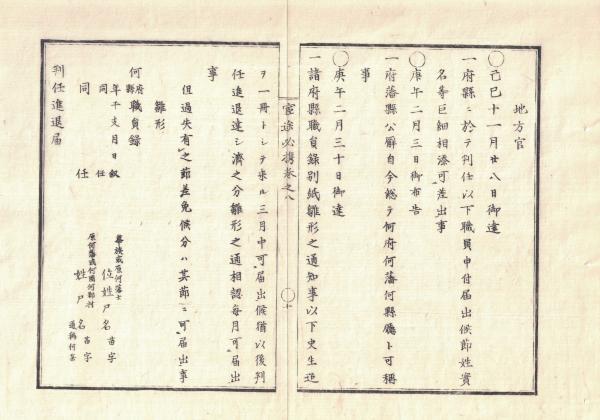 地方官
○己巳十一月廿八日御達
一府縣ニ於テ判任以下職員申付届出候節姓實
名等巨細相添可差出事
○庚午二月三日御布告
一府藩縣公廨自今總テ何府何藩何縣廳ト可稱
事
○庚午二月三十日御達
一諸府縣職員錄別紙雛形之通知事以下史生迄
官途必携卷之八
○十
ヲ一冊トシテ来ル三月中可届出候猶以後判
任進退達シ濟之分雛形之通相認毎月可届出
事
但過失有之節差免候分ハ其節ニ可届出事
雛形
何府縣職員錄
年干支月日叙任
同
華族或原何藩士
位姓尸名 苗字
同 任
原何藩或何國何郡村
姓尸名 苗字 通稱何某
判任進退届